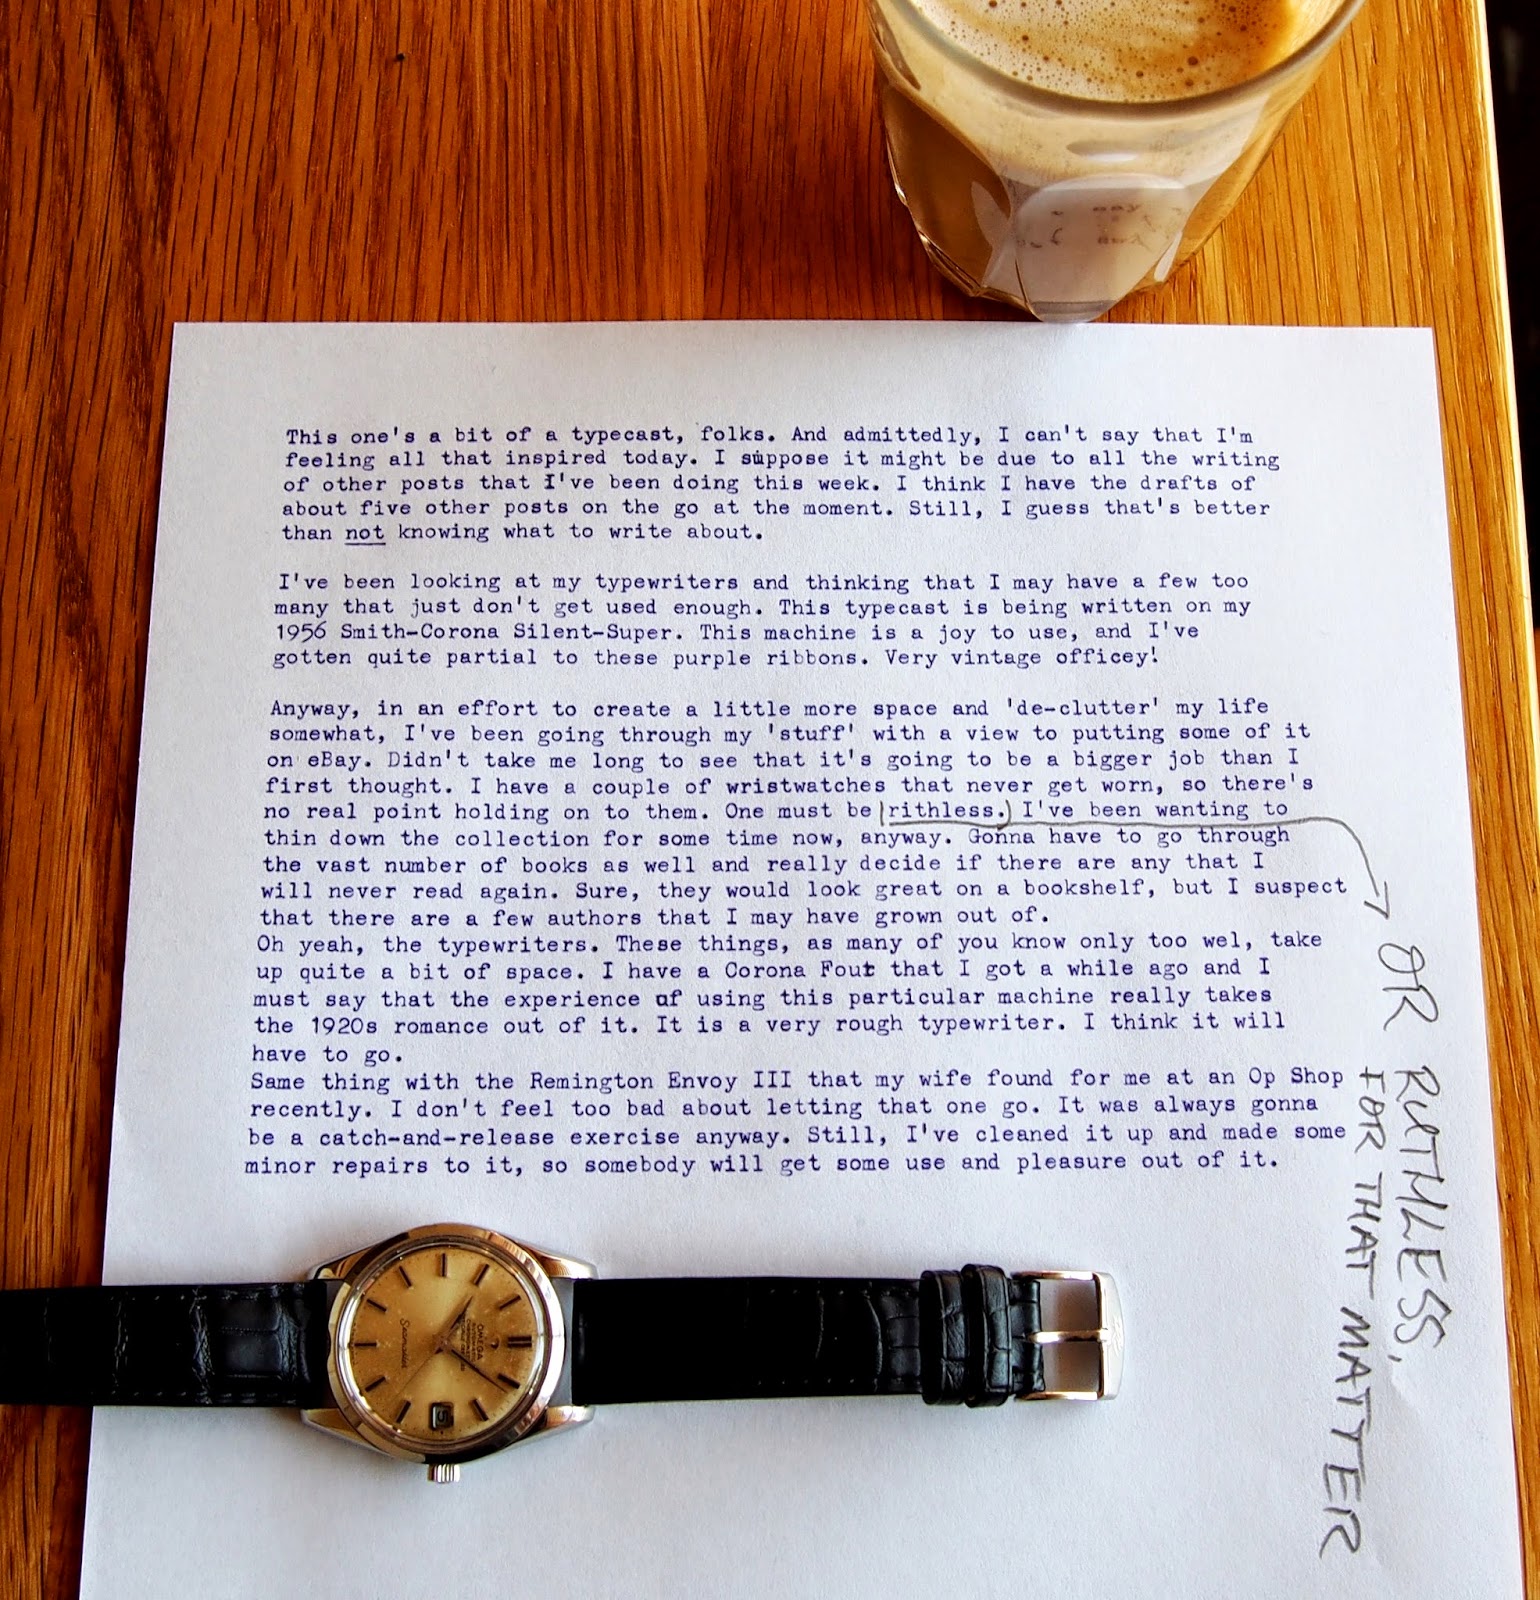 This one's a bit of a typecast, folks. And admittedly, I can't say that I'm
feeling all that inspired today. I suppose it might be due to all the writing
of other posts that I've been doing this week. I think I have the drafts of
about five other posts on the go at the moment. Still, I guess that's better
than not knowing what to write about.
I've been looking at my typewriters and thinking that I may have a few too
many that just don't get used enough. This typecast is being written on my
1956 Smith-Corona Silent-Super. This machine is a joy to use, and I've
gotten quite partial to these purple ribbons. Very vintage officey!
Anyway, in an effort to create a little more space and 'de-clutter' my life
somewhat, I've been going through my 'stuff' with a view to putting some of it
on eBay. Didn't take me long to see that it's going to be a bigger job than I
first thought. I have a couple of wristwatches that never get worn, so there's
no real point holding on to them. One must be rithless. I've been wanting to
thin down the collection for some time now, anyway. Gonna have to go through
the vast number of books as well and really decide if there are any that I
will never read again. Sure, they would look great on a bookshelf, but I suspect
that there are a few authors that I may have grown out of.
Oh yeah, the typewriters. These things, as many of you know only too wel, take
up quite a bit of space. I have a Corona Four that I got a while ago and I
must say that the experience of using this particular machine really takes
the 1920s romance out of it. It is a very rough typewriter. I think it will
have to go.
Same thing with the Remington Envoy III that my wife found for me at an Op Shop
recently. I don't feel too bad about letting that one go. It was always gonna
be a catch-and-release exercise anyway. Still, I've cleaned it up and made some
minor repairs to it, so somebody will get some use and pleasure out of it.
OR RUTHLESS,
FOR THAT MATTER
OMEGA
Seamaster
5